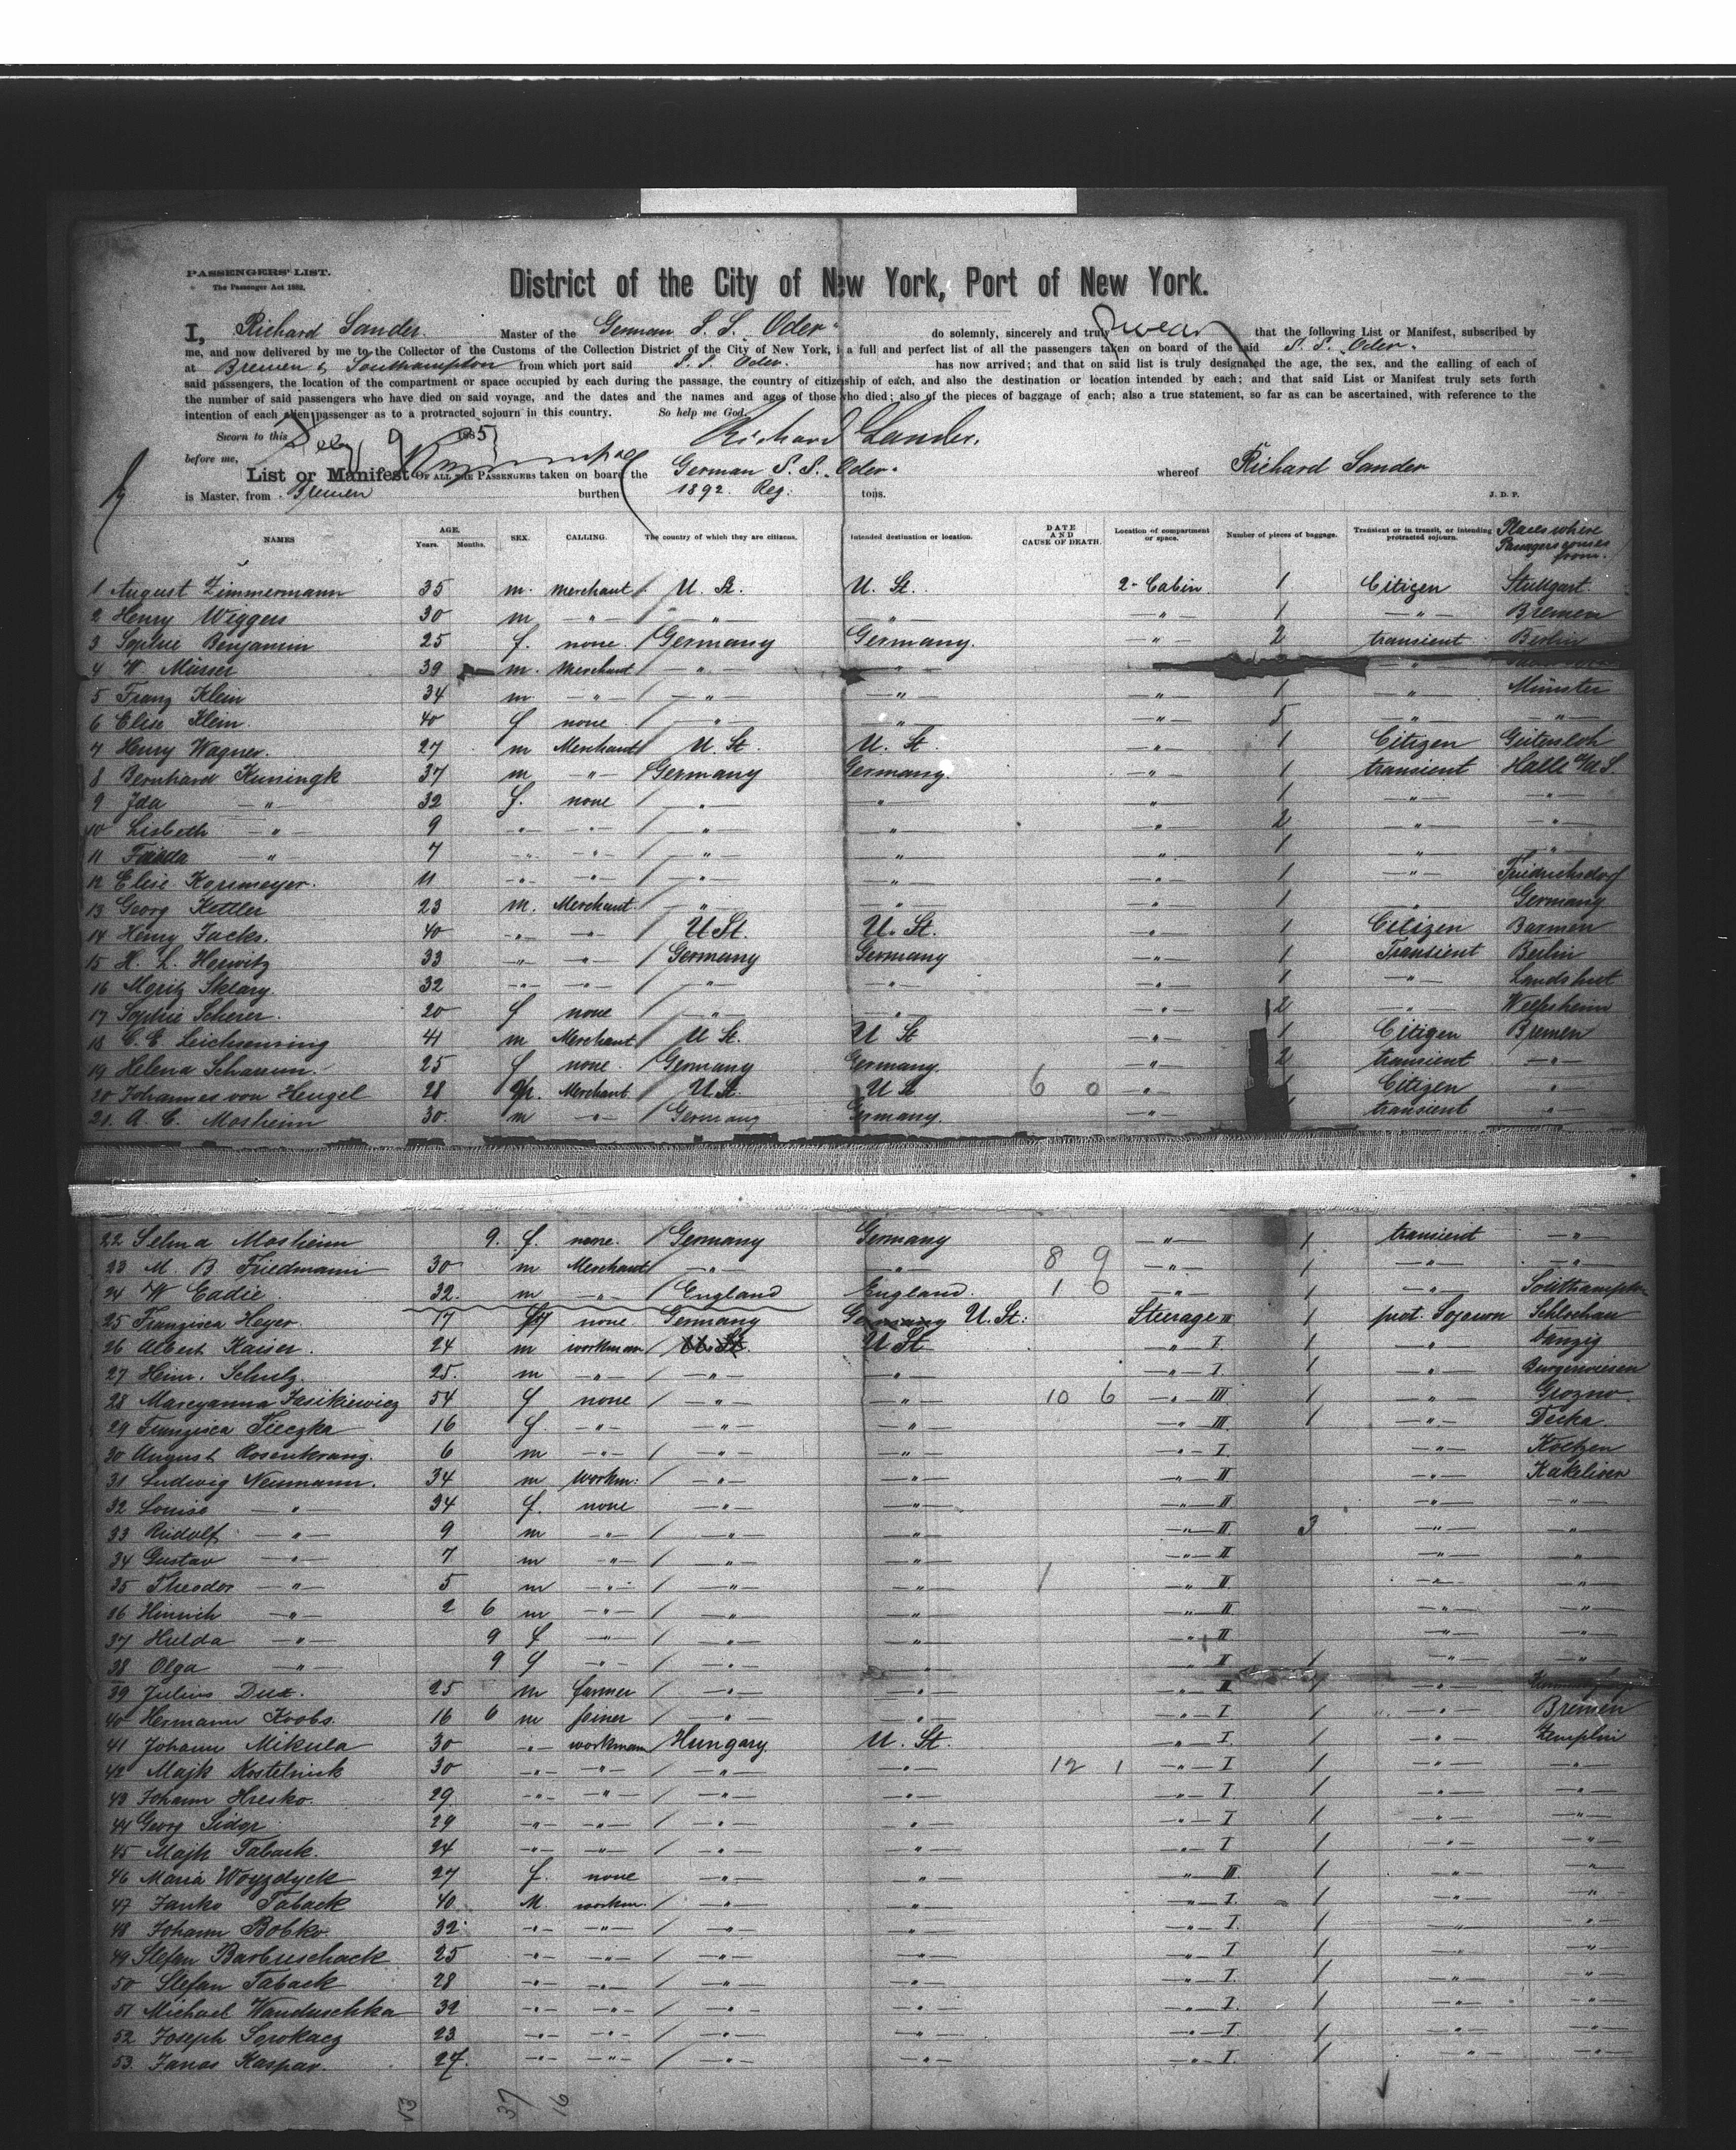 PASSENGERS' LIST.
The Passenger Act 1882.
District of the City of New York, Port of New York.
I, Richard Sander. Master of the German S. S. Oder do solemnly, sincerely and truly swear that the following List or Manifest, subscribed by
me, and now delivered by me to the Collector of the Customs of the Collection District of the City of New York, is a full and perfect list of all the passengers taken on board of the said S. S. Oder.
at Bremen & Southampton from which port said S. S. Oder. has now arrived; and that on said list is truly designated the age, the sex, and the calling of each of
said passengers, the location of the compartment or space occupied by each during the passage, the country of citizenship of each, and also the destination or location intended by each; and that said List or Manifest truly sets forth
the number of said passengers who have died on said voyage, and the dates and the names and ages of those who died; also of the pieces of baggage of each; also a true statement, so far as can be ascertained, with reference to the
intention of each alien passenger as to a protracted sojourn in this country. So help me God.
Sworn to this 9 1885 Richard Sander.
before me,
List or Manifest OF ALL THE PASSENGERS taken on board the German S. S. Oder. whereof Richard Sander
is Master, from Bremen burthen 1892. Reg. tons. J. D. P.
NAMES AGE. Years. Months. SEX. CALLING. The country of which they are citizens. Intended destination or location. DATE AND CAUSE OF DEATH. Location of compartment or space. Number of pieces of baggage. Transient or in transit, or intending protracted sojourn. Places where Passengers comes from.
1 August Zimmermann 35 m. Merchant / U. St. U. St. 2- Cabin 1 Citizen Stuttgart
2 Henry Wiggers 30 m —"— / " " —"— 1 —"— Bremen
3 Sophie Benjamin 25 f. none. / Germany Germany. —"— 2 transient Berlin
4 W. Münser 39 m. Merchant / —"— —"— —"—
5 Franz Klein 34 m —"— / —"— —"— —"— 1 —"— Münster
6 Elise Klein. 40 f none / —"— —"— —"— 5 —"— —"—
7 Henry Wagner. 27 m Merchant / U. St. U. St. —"— 1 Citizen Gütersloh
8 Bernhard Kuningk 37 m —"— / Germany Germany. —"— 1 transient Halle a/d S.
9 Ida —"— 32 f. none / —"— —"— —"— 1 —"— —"—
10 Lisbeth —"— 9 —"— —"— / —"— —"— —"— 2 —"— —"—
11 Frieda —"— 7 —"— —"— / —"— —"— —"— 1 —"— —"—
12 Elise Karsmeyer. 11 —"— —"— / —"— —"— —"— 1 —"— Friedrichsdorf
13 Georg Kettler 23 m. Merchant. / —"— —"— —"— 1 —"— Germany
14 Henry Jacks. 40 —"— —"— U St. U. St. —"— 1 Citizen Barmen
15 H. L. Horwitz 33 —"— —"— / Germany Germany —"— 1 Transient Berlin
16 Moritz Sklarz. 32 —"— —"— / —"— —"— —"— 1 —"— Landshut
17 Sophie Scherer. 20 f none / —"— —"— —"— 2 —"—
18 C. E Leichsenring 41 m Merchant / U St. U St —"— 1 Citizen Bremen
19 Helena Scharrun. 25 f none / Germany Germany. —"— 2 transient —"—
20 Johannes von Hengel 28 m. Merchant / U St. U St 6 0 —"— Citizen "
21. A. C. Mosheim 30. m —"— / Germany Germany. —"— transient "
22 Selma Mosheim 9. f. none. / Germany Germany —"— 1 transient —"—
23 M. B Friedmann 30 m Merchant / —"— —"— 8 9 —"— 1 —"— —"—
24 W Eadie 32. m —"— / England England. 1 6 —"— 1 —"— Southampton
25 Franzisca Heyer. 17 f none Germany Germany U. St: Steerage III 1 prot. Sojourn Schlochau
26 Albert Kaiser. 24 m workman / U. St. U St. —"— I. 1 —"— Danzig
27 Heinr. Schulz. 25. m —"— / —"— —"— —"— I. 1 —"— Burgenwiesen
28 Mareyanna Jasikiewicz 54 f none / —"— —"— 10 6 —"— III 1 —"— Grozno
29 Franzisca Fleczka 16 f. —"— —"— —"— —"— III. 1 —"— Decka
30 August Rosenkranz. 6 m —"— / —"— —"— —"— I. —"— Koetzen
31 Ludwig Neumann. 34 m workm: / —"— —"— —"— II —"— Kakeliven
32 Louise " 34 f. none —"— —"— —"— II —"— —"—
33 Rudolf —"— 9 m —"— / —"— —"— —"— II. 3 —"— —"—
34 Gustav —"— 7 m —"— / —"— —"— —"— II —"— —"—
35 Theodor —"— 5 m —"— / —"— —"— 1 —"— II —"— —"—
36 Hinrich —"— 2 6 m —"— / —"— —"— —"— II —"— —"—
37 Hulda —"— 9 f —"— / —"— —"— —"— II —"— —"—
38 Olga —"— 9 f —"— / —"— —"— —"— II 1 —"— —"—
39 Julius Dux. 25 m farmer / —"— —"— —"— II 1 —"—
40 Hermann Koobs. 16 6 m joiner / —"— —"— —"— I 1 —"— Bremen
41 Johann Mikula 30 —"— workman / Hungary. U. St. —"— I. 1 —"— Zemplin
42 Majk Kostelnick 30 —"— —"— / —"— —"— 12 1 —"— I 1 —"— —"—
43 Johann Hresko. 29 —"— —"— / —"— —"— —"— I 1 —"— —"—
44 Georg Sidor 29 —"— —"— / —"— —"— —"— I 1 —"— —"—
45 Majk Taback. 24 —"— —"— / —"— —"— —"— I 1 —"— —"—
46 Maria Woyzdyck 27 f. none —"— —"— —"— III. 1 —"— "
47 Janko Taback 40 M. workm. / —"— —"— —"— I. 1 —"— —"—
48 Johann Bobko. 32 —"— —"— / —"— —"— —"— I. 1 —"— —"—
49 Stefan Barbuschack. 25 —"— —"— / —"— —"— —"— I 1 —"— —"—
50 Stefan Taback 28 —"— —"— / —"— —"— —"— I. 1 —"— —"—
51 Michael Wanduschka 32 —"— —"— / —"— —"— —"— I. 1 —"— —"—
52 Joseph Serokacz 23 —"— —"— / —"— —"— —"— I 1 —"— —"—
53. Janos Kaspar. 27. —"— —"— / —"— —"— —"— I. 1 —"— —"—
53 37 16